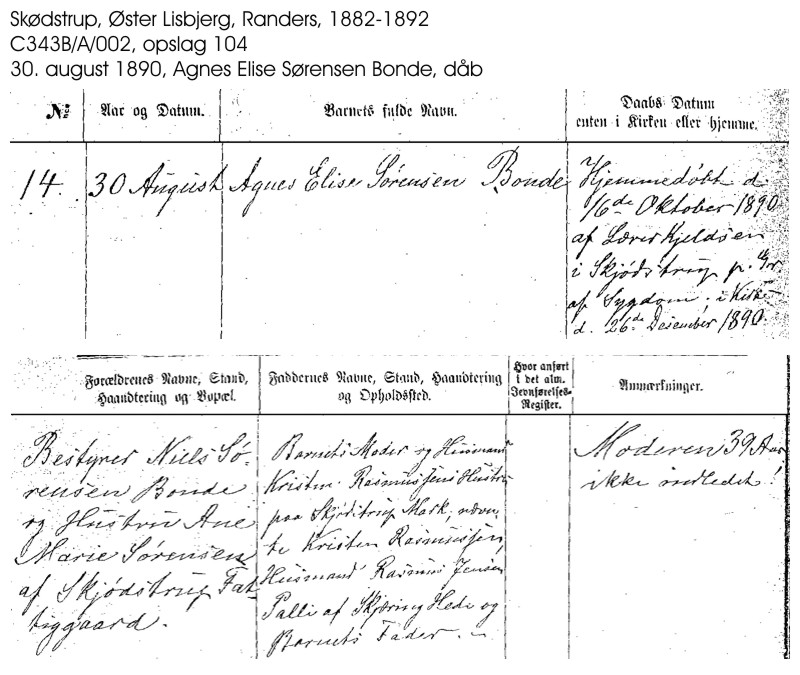 Skødstrup, Øster Lisbjerg, Randers, 1882-1892
C343B/A/002, opslag 104
30. august 1890, Agnes Elise Sørensen Bonde, dåb
No:
Aar og Datum.
Barnets fulde Navn.
Daabs Datum
enten i Kirken eller hjemme.
14.
30 August
Agnes Elise Sørensen Bonde
Hjemmedøbt d
16de Oktober 1890
af Lærer Kjeldsen
i Skjødstrup p. Gr
af Sygdom; i Kirk-
d. 26de Desember 1890.
Forældrenes Navne, Stand,
Haandtering og Bopæl.
Faddernes Navne, Stand, Haandtering
og Opholdssted.
Hvor anført
i det alm.
Jevnførelses-
Register.
Anmærkninger.
Bestyrer Niels Sø-
rensen Bonde
og Hustru Ane
Marie Sørensen
af Skjødstrup Fat-
tiggaard.
Barnets Moder og Husmand
Kristen Rasmussens Hustru
paa Skjødstrup Mark, nævn-
te Kristen Rasmussen,
Husmand Rasmus Jensen
Palli af Skjæring Hede og
Barnets Fader. -
Moderen 39 Aar
ikke indledet!